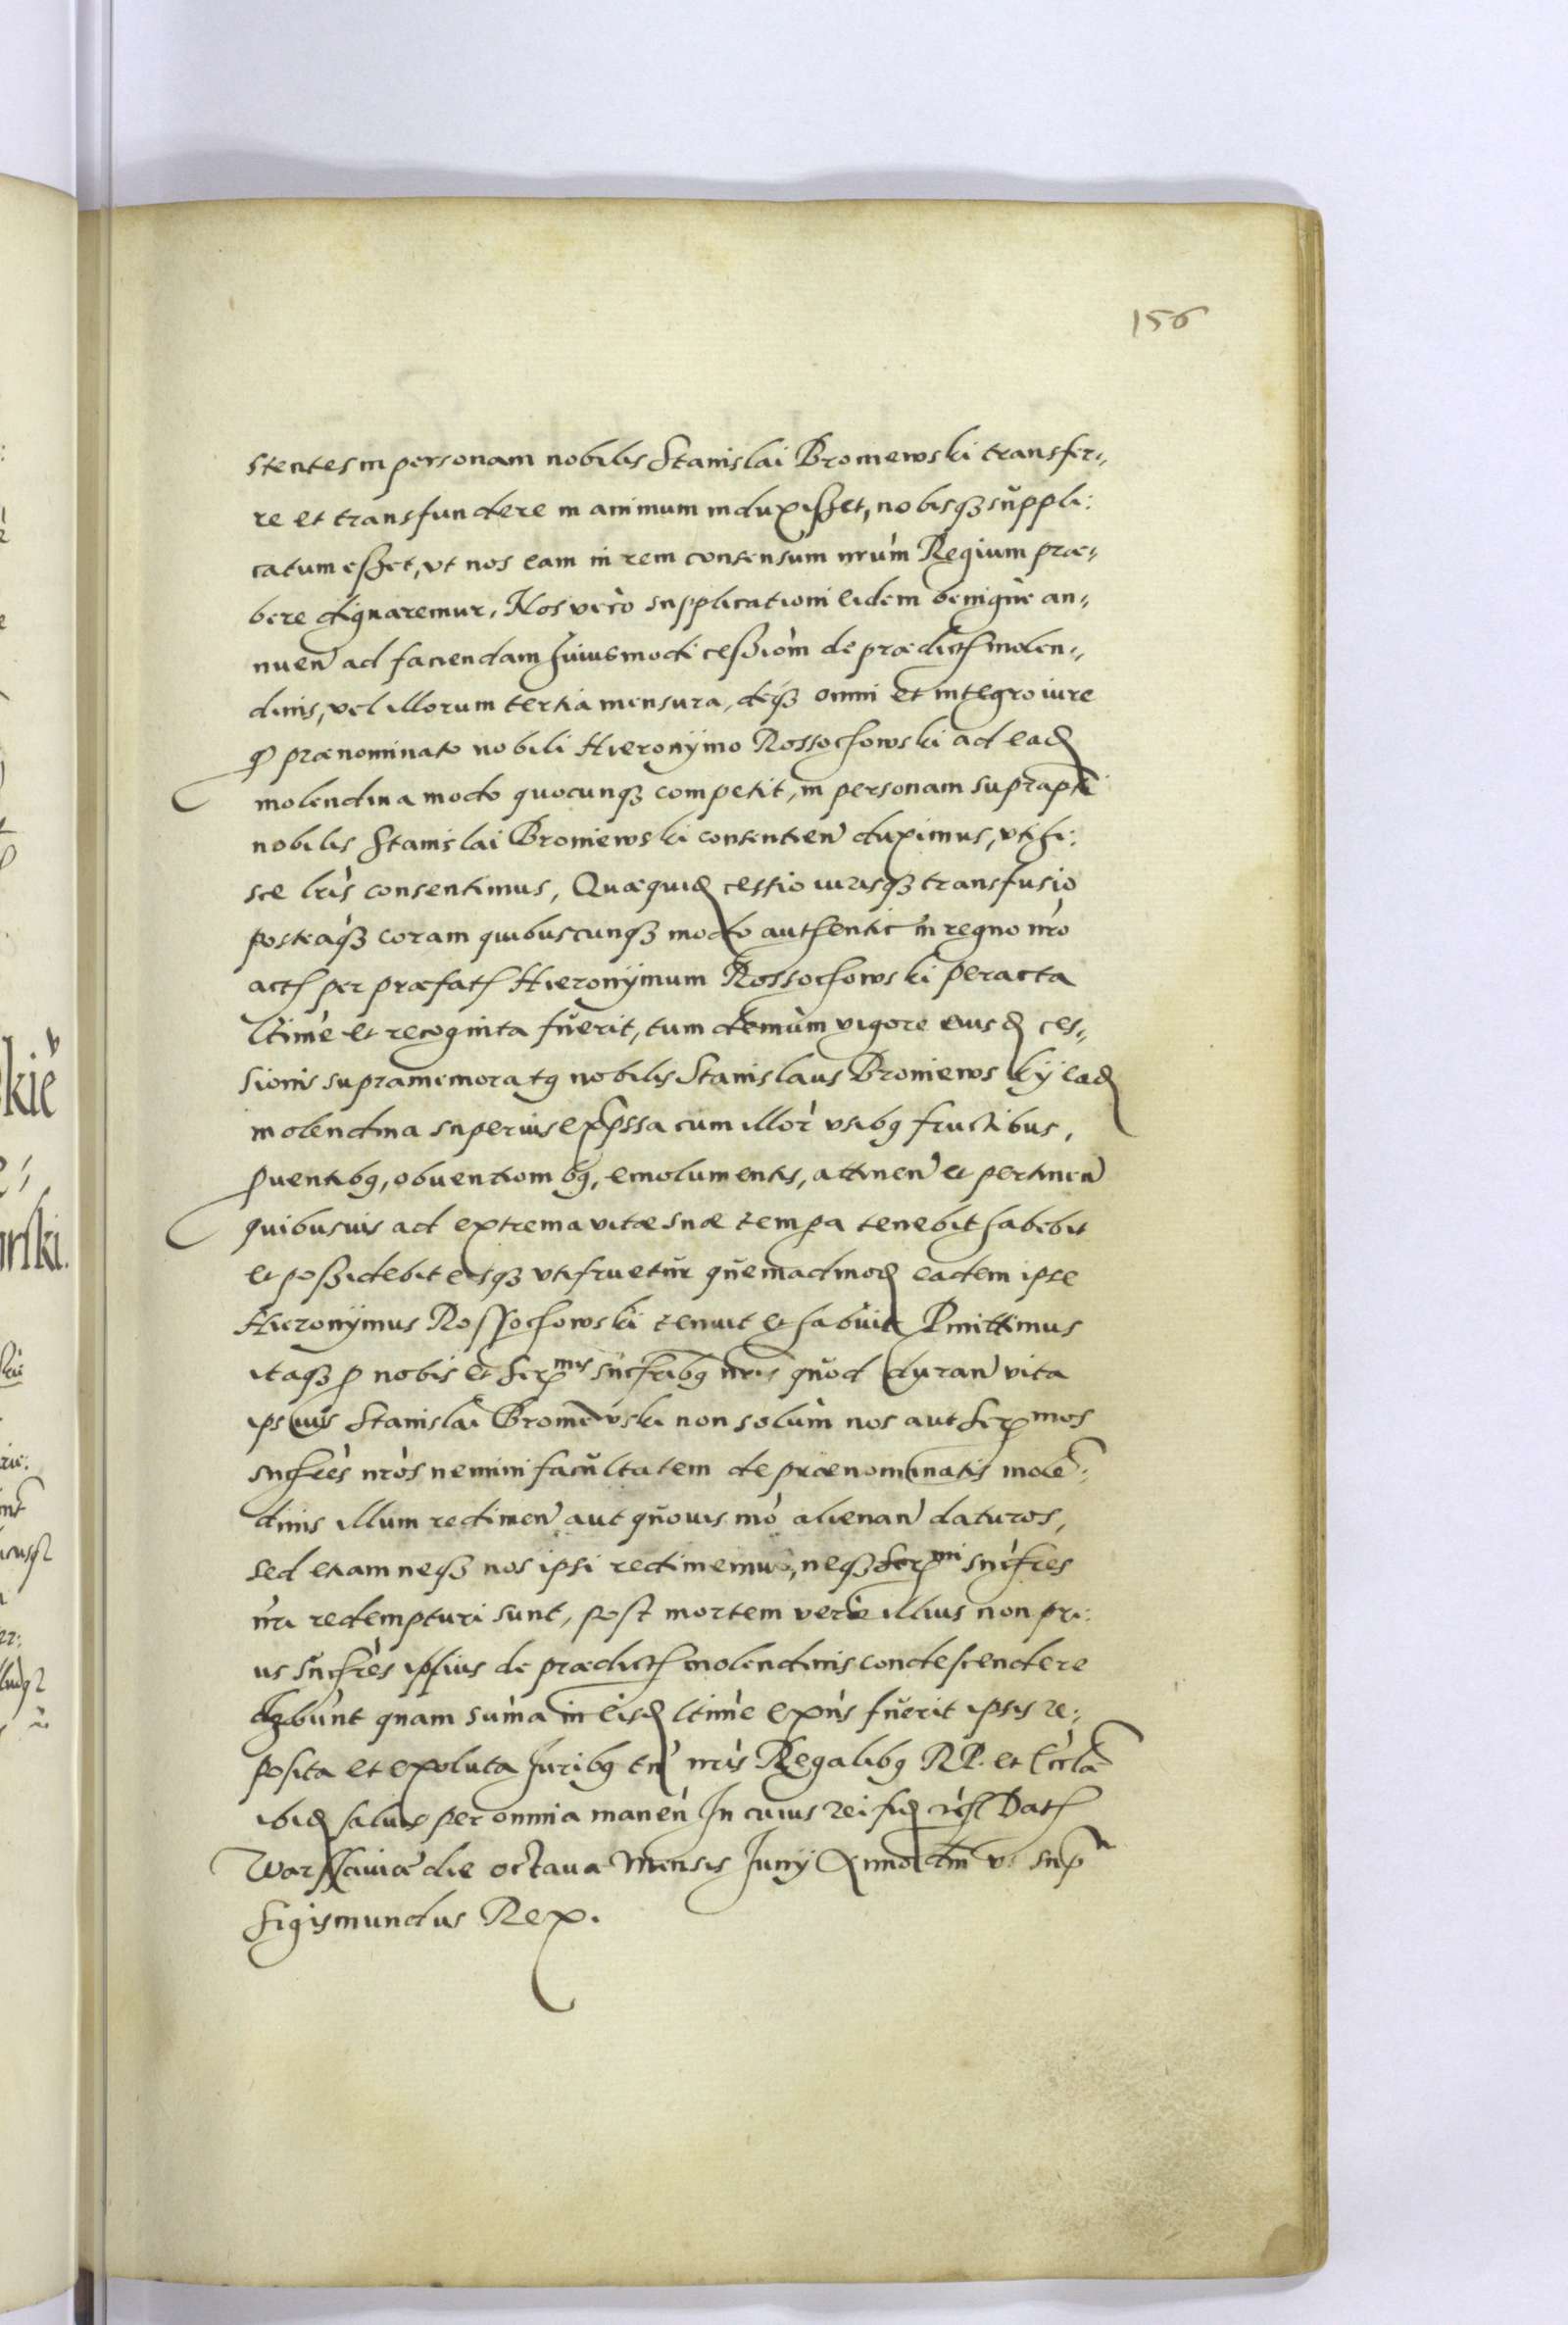 156
stentes in personam nobilis Stanislai Broniewski transfer-
re et transfundere in animum induxißet, nobisqꝫ suppli:
catum eßet, vt nos eam in rem consensum nrum Regium præ-
bere dignaremur, Nos vero supplicationi eidem benigne an-
nuen ad faciendam huiusmodi ceßiom de prædict molen-
dinis, vel illorum tertia mensura, deqꝫ omni et integro iure
qd prænominato nobili Hieronymo Rossochowski ad ead
molendina modo quocunqꝫ competit, in personam suprapti
nobilis Stanislai Broniewski consentien duximus, vti hi:
sce lris consentimus, Quæquid cessio iurisqꝫ transfusio
posteaqꝫ coram quibuscunqꝫ modo authentic in regno nro
act per præfat Hieronymum Rossochowski peracta
ltime et recognita fuerit, tum demum vigore eiusd ces-
sionis supramemoratꝰ nobilis Stanislaus Broniewskij ead
molendina superius expssa cum illor vsibꝰ fructibus,
ꝓuentibꝰ, obuentionibꝰ, emolumentis, attinen et pertinen
quibusuis ad extrema vitæ suæ tempa tenebit habebit
et poßidebit eisqꝫ vtifruetur quemadmod eadem ipse
Hieronymus Rossochowski tenuit et habuit Pmittimus
itaqꝫ ꝓ nobis et Sermis sucribꝰ nris quod duran vita
ipsius Stanislai Broniewski non solum nos aut Sermos
sucres nros nemini facultatem de prænominatis molē:
dinis illum redimen aut quouis mo alienan daturos,
sed etiam neqꝫ nos ipsi redimemus, neqꝫ Sermi sucres
nri redempturi sunt, post mortem vero illius non pri:
us sucres ipsius de prædict molendinis condescendere
dꝫbunt quam suma in eisd ltime expns fuerit ipsis re:
posita et exoluta Juribꝰ tn nris Regalibꝰ RP. et Eccla
ibid saluis per omnia manen In cuius rei fid Dat
Warssauiæ die octaua Mensis Junij Anno dni vt sup
Sigismundus Rex.